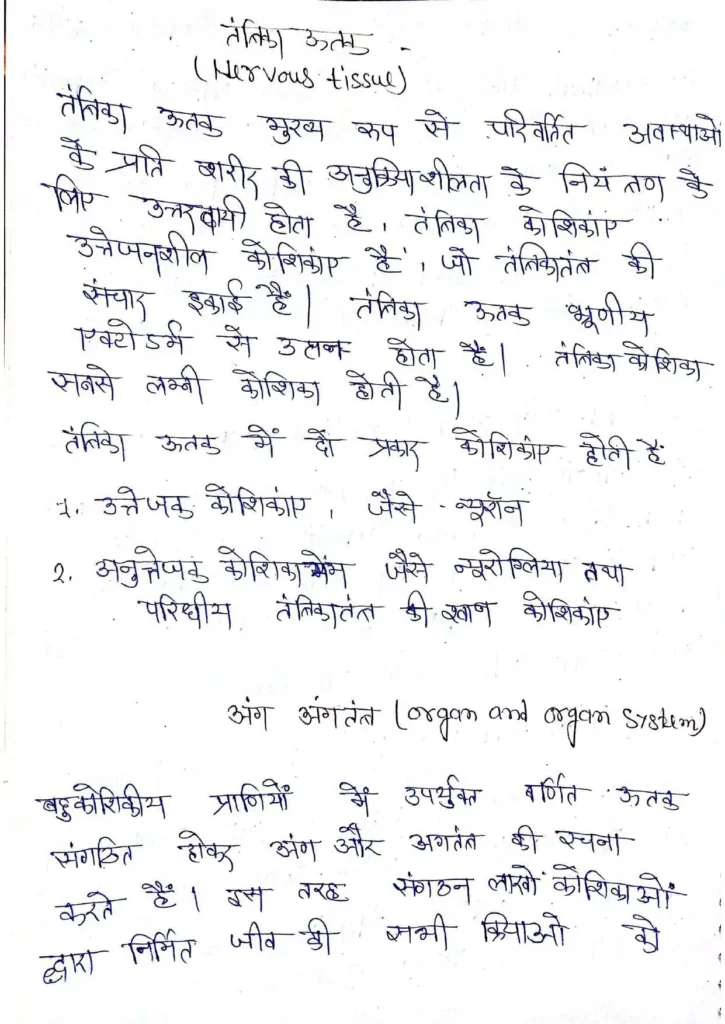 तंत्रिका ऊतक -
(Nervous tissue)
तंत्रिका ऊतक मुख्य रूप से परिवर्तित अवस्थाओ
के प्रति शरीर की अनुक्रियाशीलता के नियंत्रण के
लिए उत्तरदायी होता है, तंत्रिका कोशिकाएं
उत्तेजनशील कोशिकाएं है, जो तंत्रिकातंत्र की
संचार इकाई हैं। तंत्रिका ऊतक भ्रूणीय
एक्टोडर्म से उत्पन्न होता है। तंत्रिका कोशिका
सबसे लम्बी कोशिका होती है।
तंत्रिका ऊतक में दो प्रकार कोशिकाएं होती हैं
1. उत्तेजक कोशिकाएं, जैसे - न्यूरॉन
2. अनुत्तेजक कोशिकाएं जैसे न्यूरोग्लिया तथा
परिधीय तंत्रिकातंत्र की श्वान कोशिकाएं
अंग अंगतंत्र (organ and organ system)
बहुकोशिकीय प्राणियों में उपर्युक्त वर्णित ऊतक
संगठित होकर अंग और अगतंत्र की रचना
करते हैं। इस तरह संगठन लाखों कोशिकाओं
द्वारा निर्मित जीव की सभी क्रियाओ को